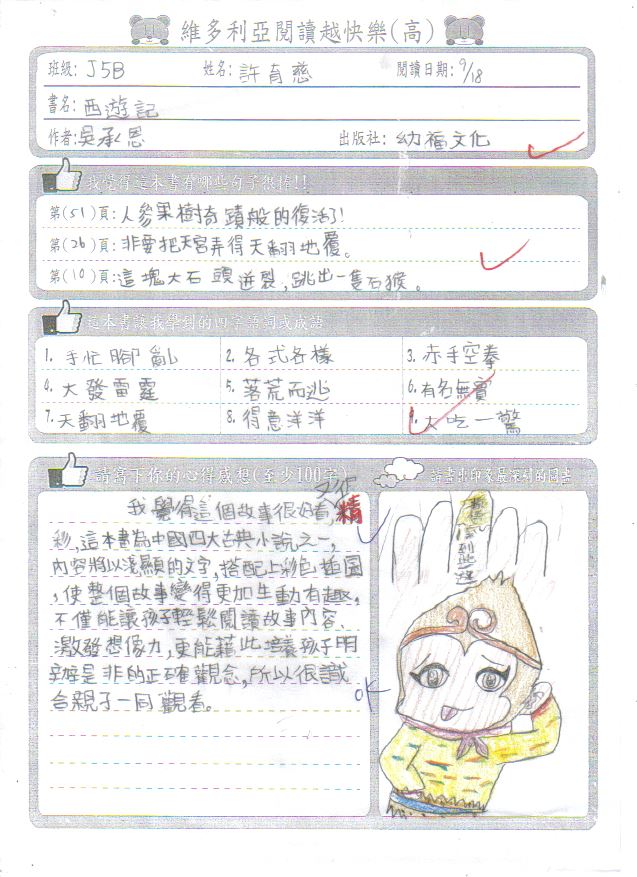 維多利亞閱讀越快樂(高)
班級: J5B 姓名: 許育慈 閱讀日期: 9/18
書名: 西遊記
作者: 吳承恩 出版社: 幼福文化
我覺得這本書有哪些句子很棒!!
第(51)頁: 人參果樹奇蹟般的復活了!
第(26)頁: 非要把天宮弄得天翻地覆。
第(10)頁: 這塊大石頭迸裂,跳出一隻石猴。
這本書讓我學到的四字語詞或成語
1. 手忙腳亂 2. 各式各樣 3. 赤手空拳
4. 大發雷霆 5. 落荒而逃 6. 有名無實
7. 天翻地覆 8. 得意洋洋 9. 大吃一驚
請寫下你的心得感想(至少100字)
我覺得這個故事很好看,精
彩,這本書為中國四大古典小說之一,
內容將以淺顯的文字,搭配上彩色插圖
,使整個故事變得更加生動有趣。
不僅能讓孩子輕鬆閱讀故事內容、
激發想像力,更能藉此培養孩子明
辨是非的正確觀念,所以很識
合親子一同觀看。
OK
請畫出印象最深刻的圖畫
到此之遊